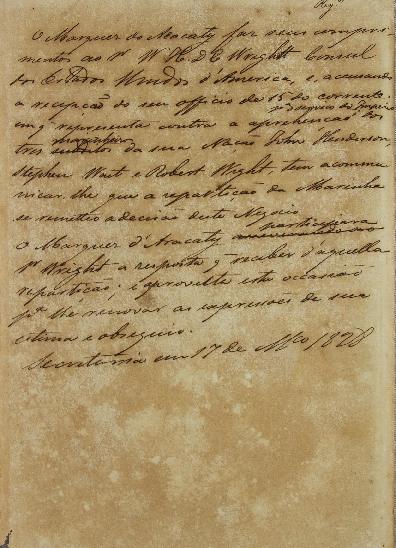 Reg.
O Marquez do Aracaty faz seus compri-
mentos ao Sr. W. H. D. C. Wright Consul
dos Estados Unidos d'America, e, accusando
a recepção do seu officio de 15 do corrente
no serviço do Imperio
em q representa contra a aprehensão dos
marinheiros
tres subditos da sua Nação John Henderson,
Stephen West e Robert Wight, tem a commu
nicar-lhe que a repartição da Marinha
se remetteo a decisão deste Negocio.
participara
O Marquez d'Aracaty ao
Sr. Wright a resposta q receber d'aquella
repartição; e aproveita esta occasião
pa. lhe renovar as expressões de sua
estima e obsequio.
Secretaria em 17 de Mço 1828